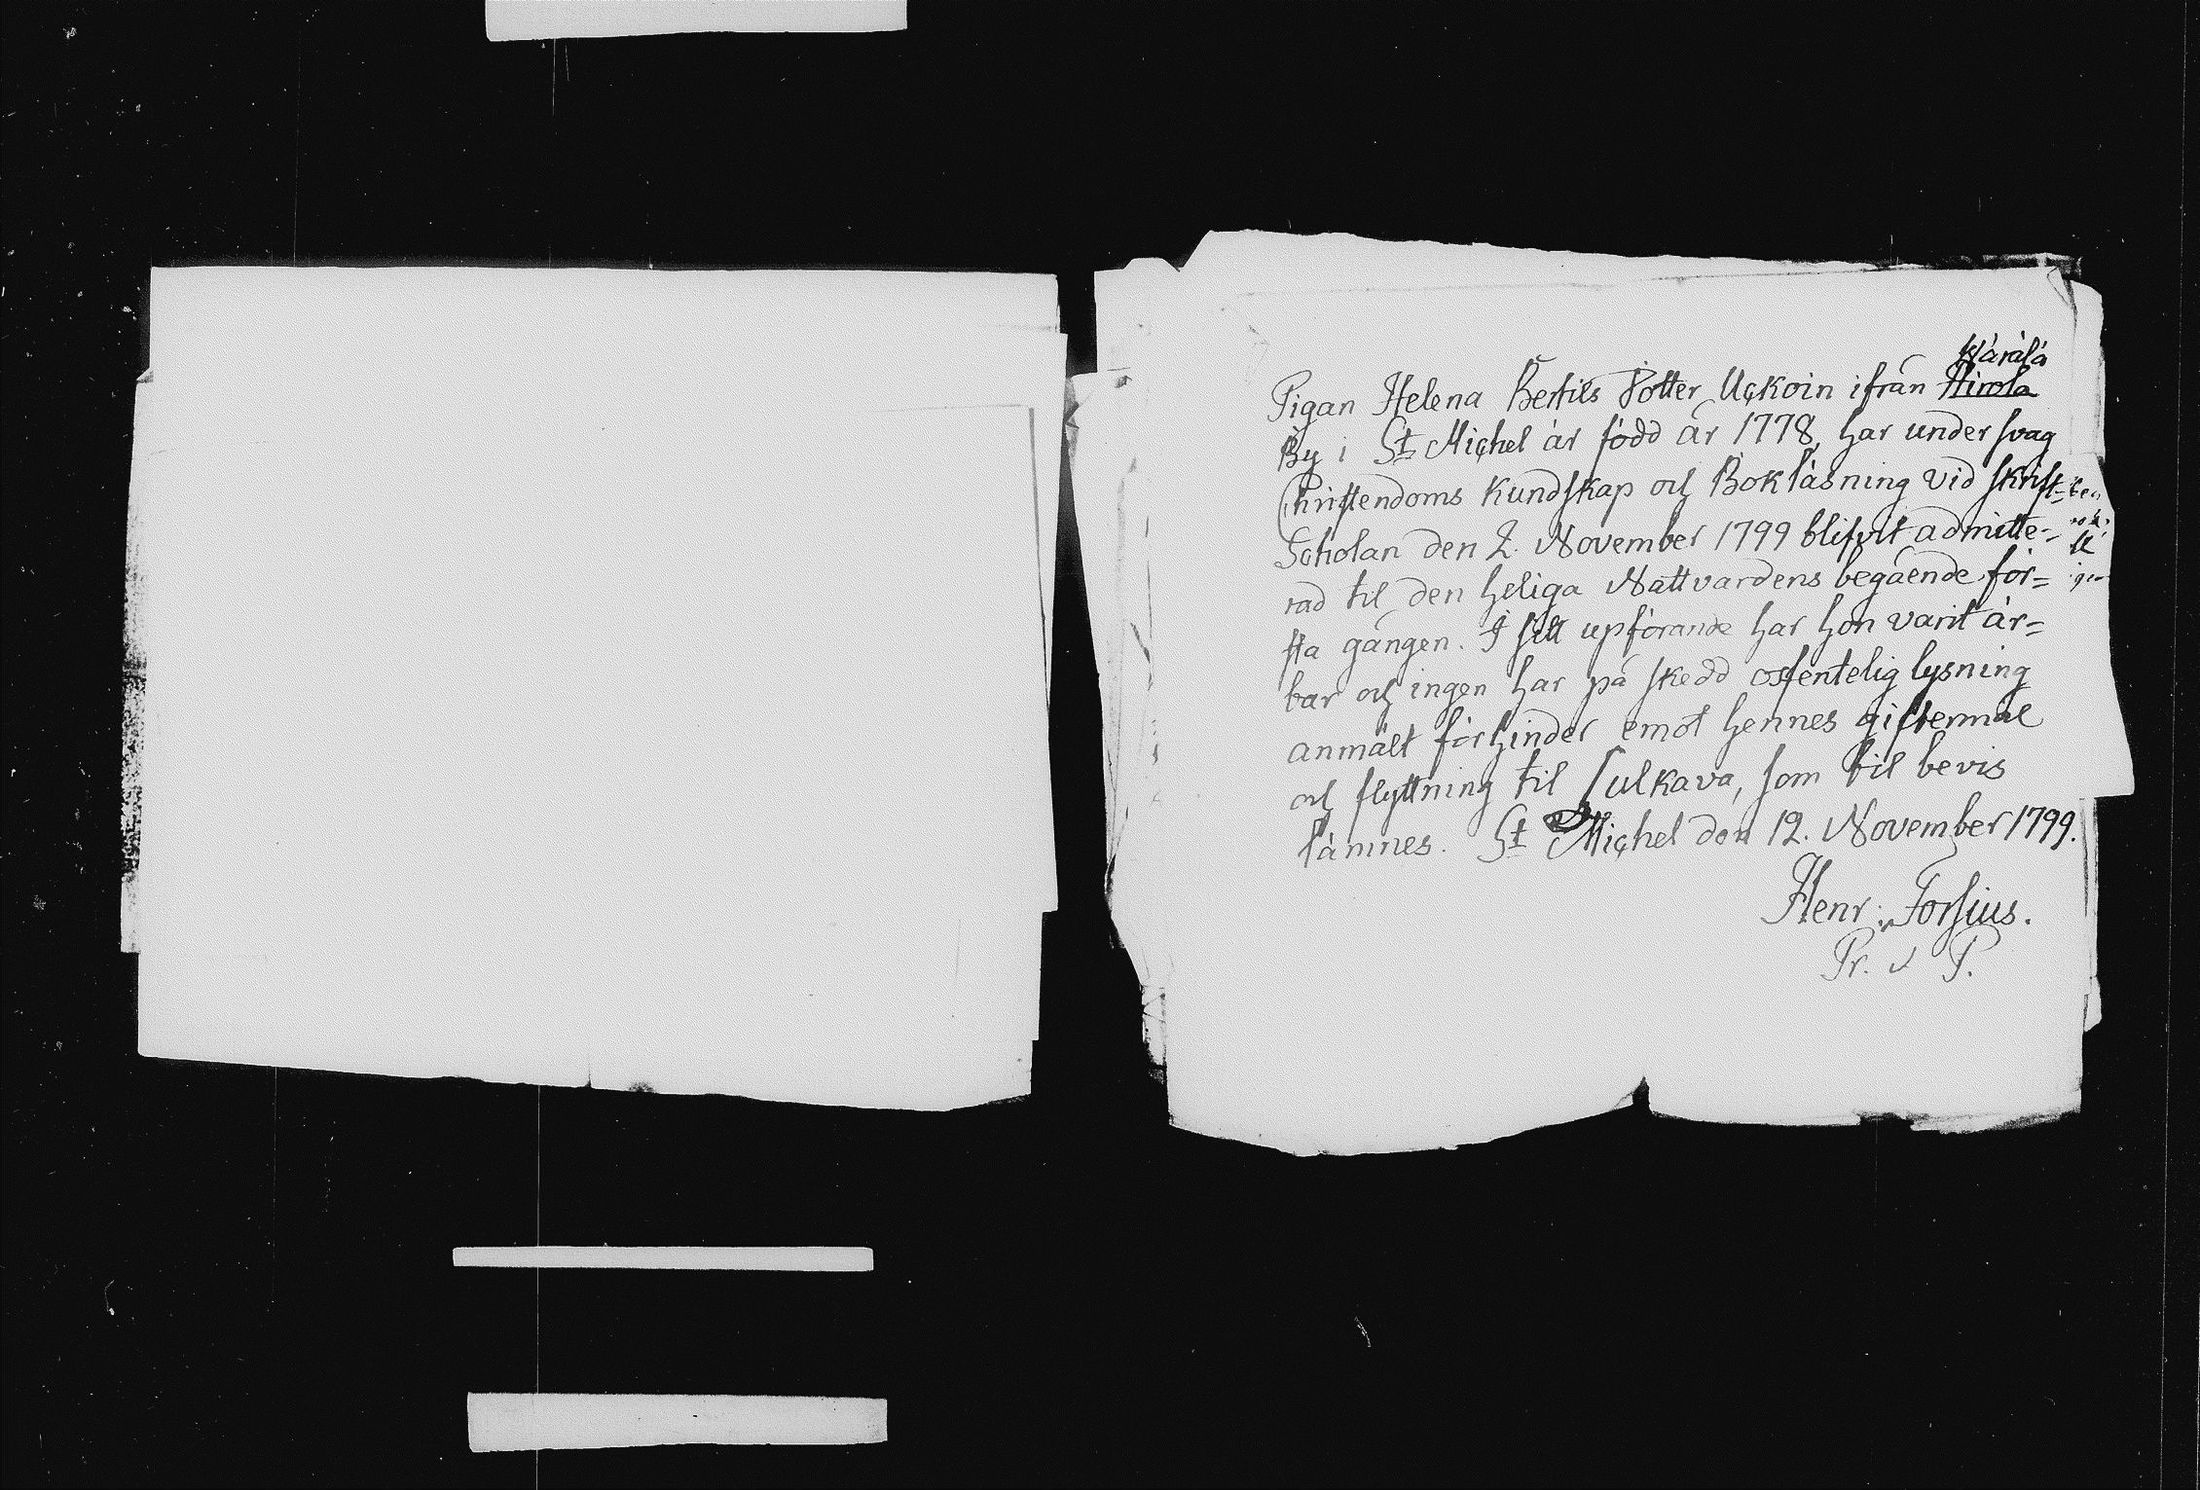 Wärälä
Pigan Helena Bertils Dotter Uckoin ifrån Hirola
By i St Michel är född år 1778, har under svag
Christendoms kundskap och Bokläsning vid skrift-
Scholan den 2. November 1799 blifvit admitte-
rad til den heliga Nattvardens begående för=
sta gången. I sitt upförande har hon varit är=
bar och ingen har på skedd offentelig lysning
anmält förhinder emot hennes giftermål
och flyttning til Sulkava, som til bevis
lämnes. St Michel den 12. November 1799.
Henr: Forsius.
Pr. v P.